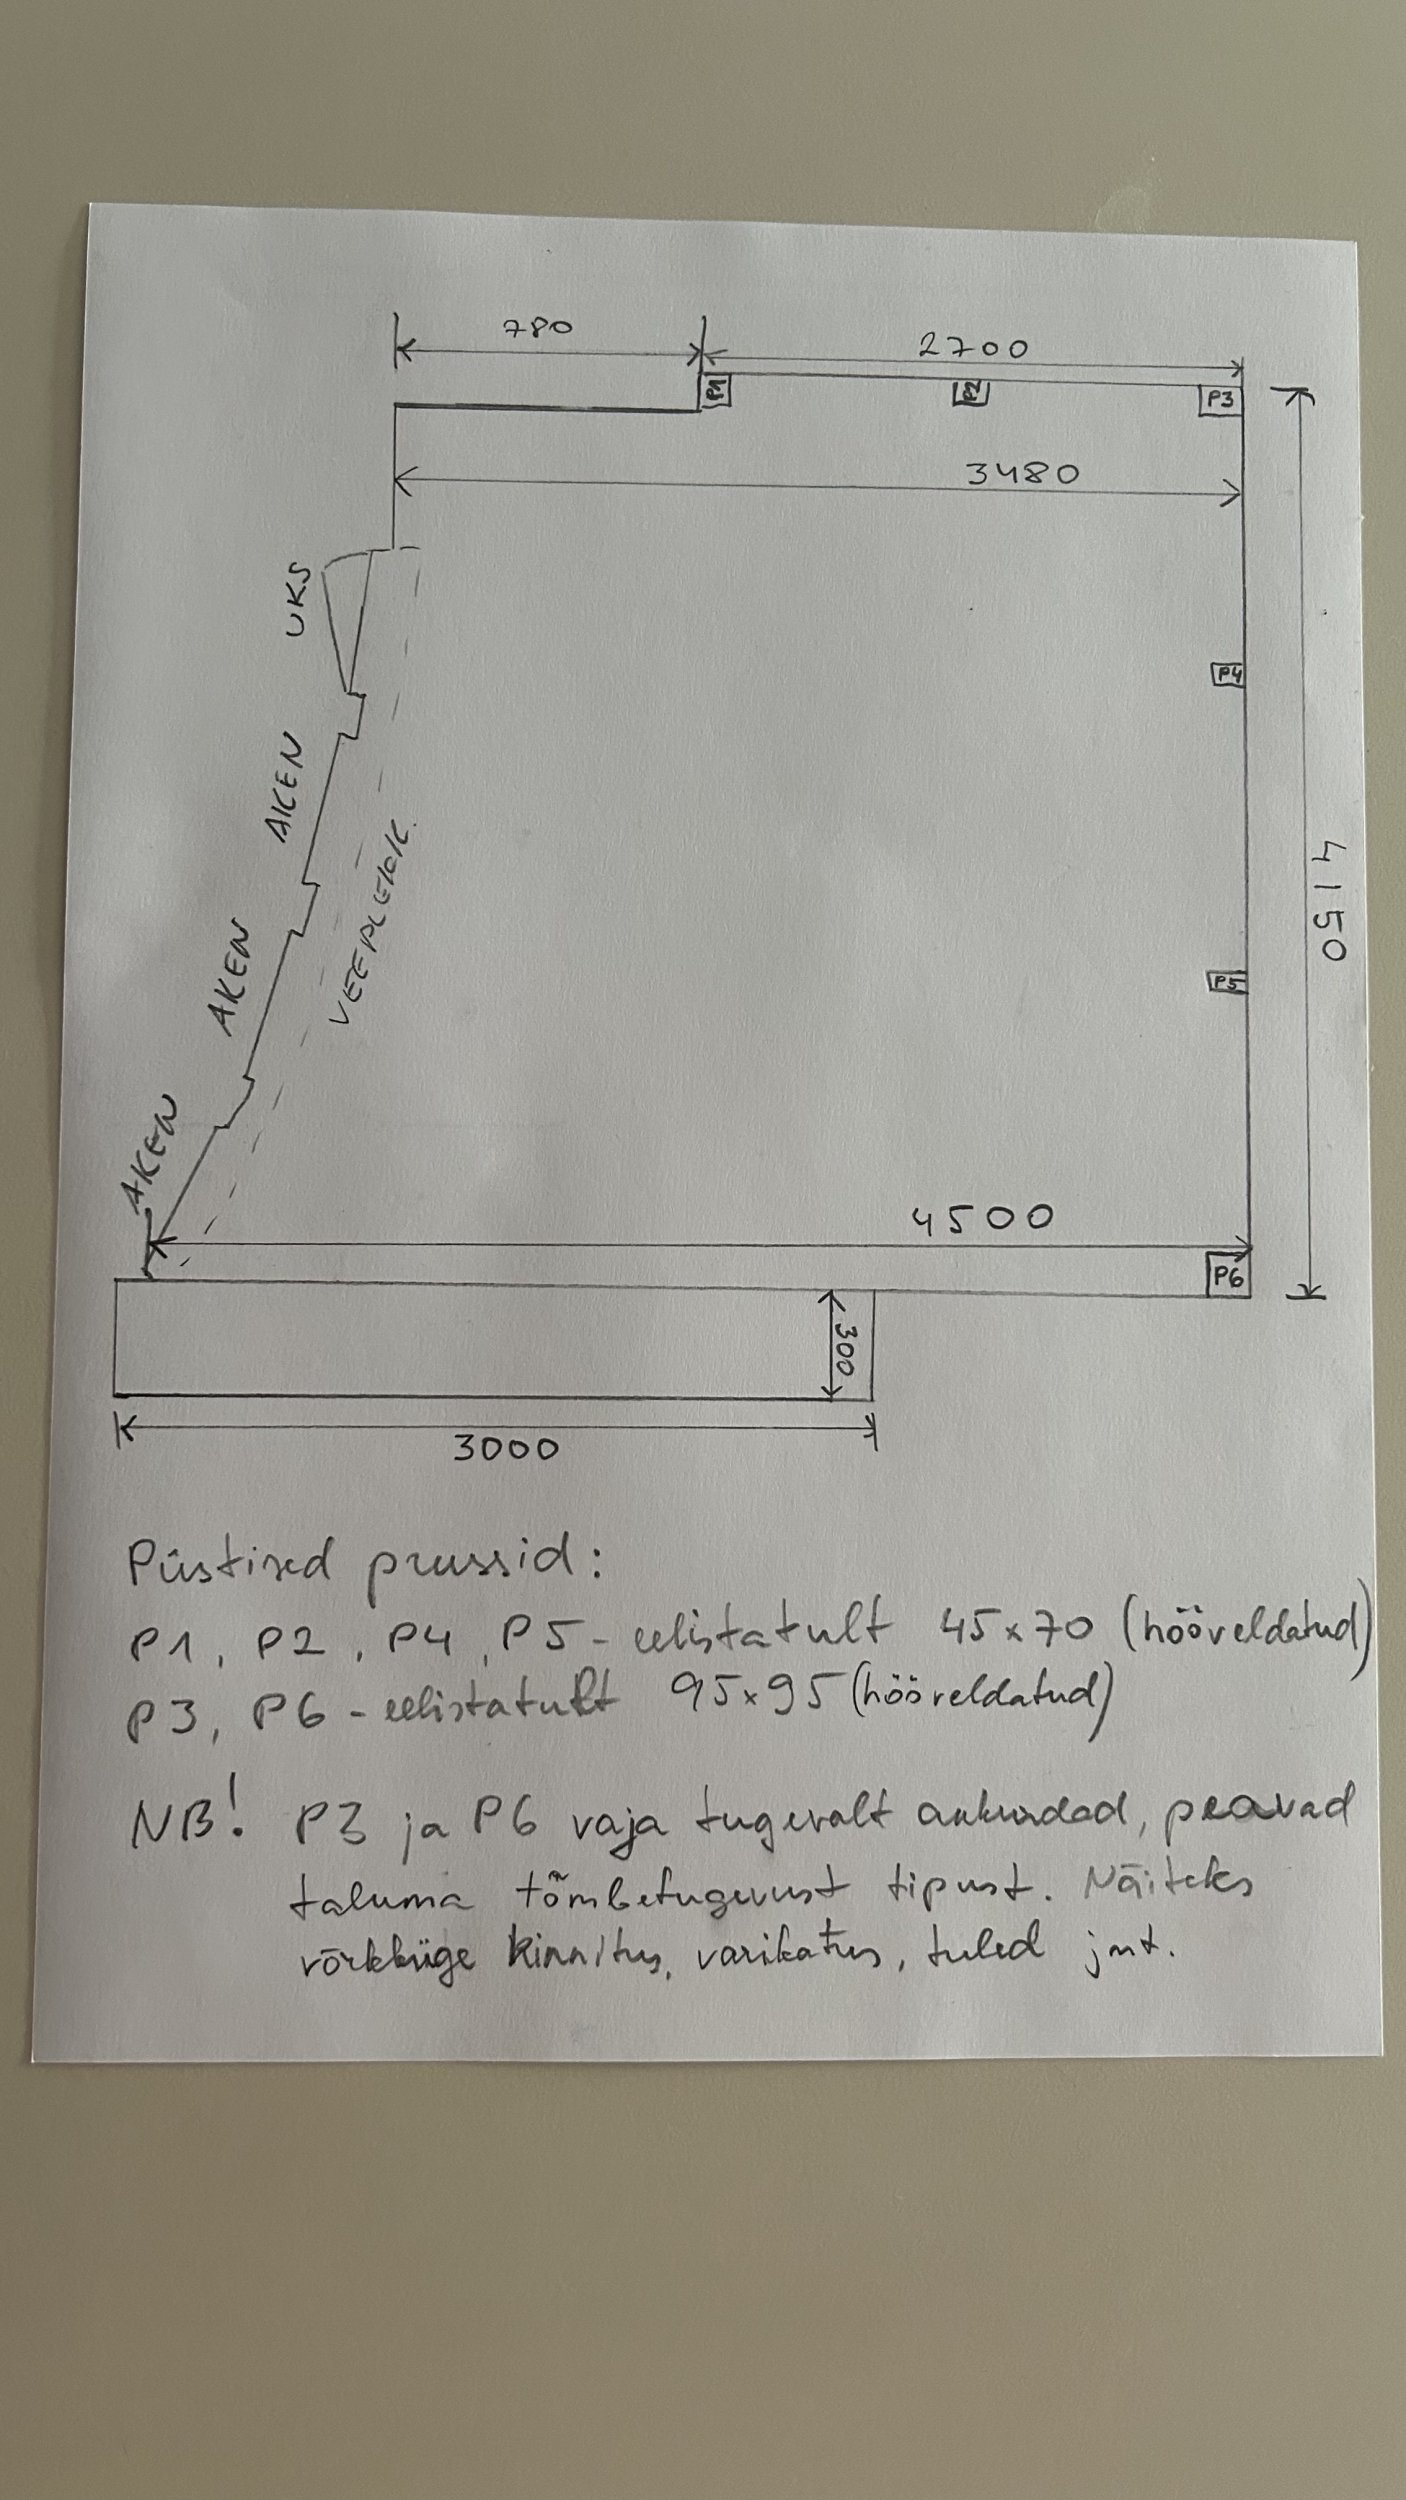 780
2700
P1
P2
P3
3480
UKS
P4
AKEN
4150
VEEPLEKK.
AKEN
P5
AKEN
4500
P6
300
3000
Püstised prussid:
P1, P2, P4, P5 - eelistatult 45x70 (hööveldatud)
P3, P6 - eelistatult 95x95 (hööveldatud)
NB! P3 ja P6 vaja tugevalt ankurdad, peavad
taluma tõmbetugevust tipust. Näiteks
võrkkiige kinnitus, varikatus, tuled jmt.